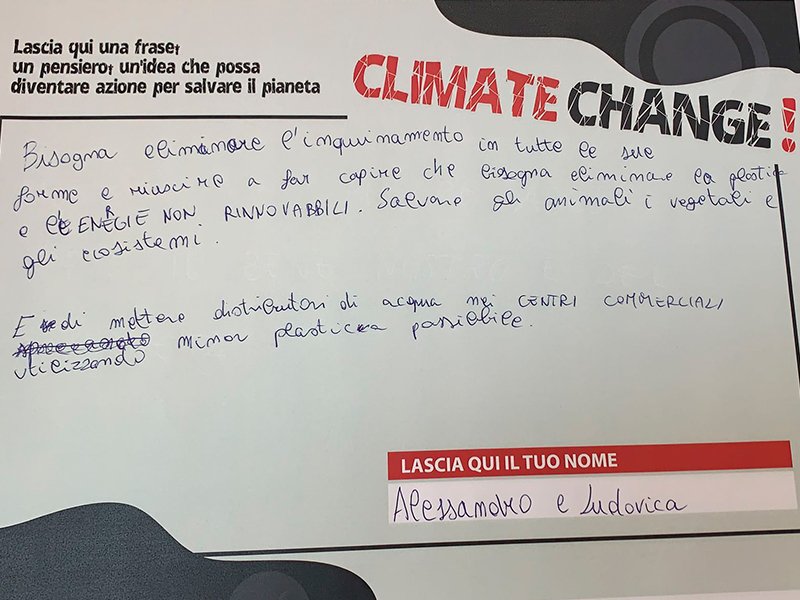 Lascia qui una frase,
un pensiero, un'idea che possa
diventare azione per salvare il pianeta
CLIMATE CHANGE!
Bisogna eliminare l'inquinamento in tutte le sue
forme e riuscire a far capire che bisogna eliminare la plastica
e le ENERGIE NON RINNOVABBILI. Salvare gli animali i vegetali e
gli ecosistemi.
E di mettere distributori di acqua nei CENTRI COMMERCIALI
utilizzando minor plastica possibile.
LASCIA QUI IL TUO NOME
Alessandro e Ludovica